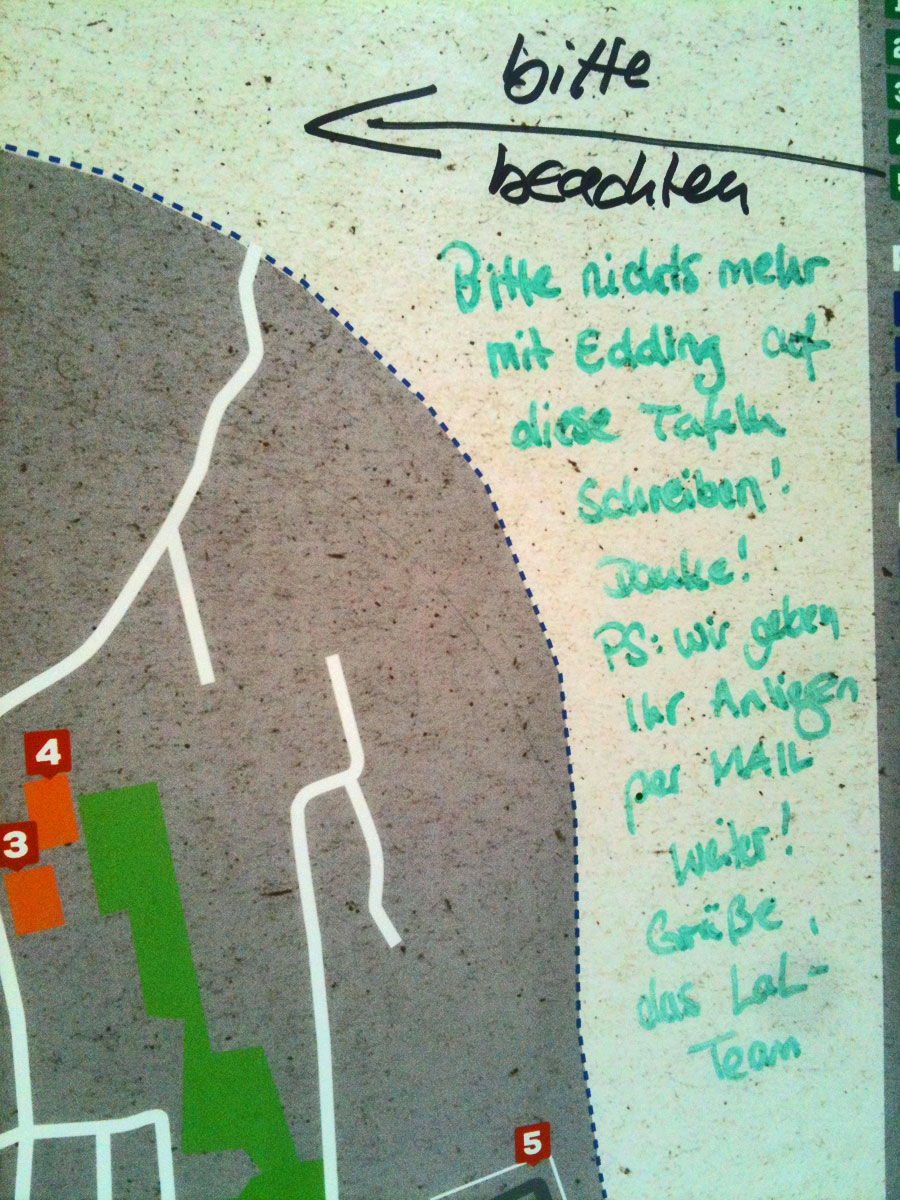 bitte
beachten
Bitte nichts mehr
mit Edding auf
diese Tafeln
Schreiben!
Danke!
PS: wir geben
Ihr Anligen
per MAIL
weiter!
Grüße,
das LaL-
Team
4
3
5